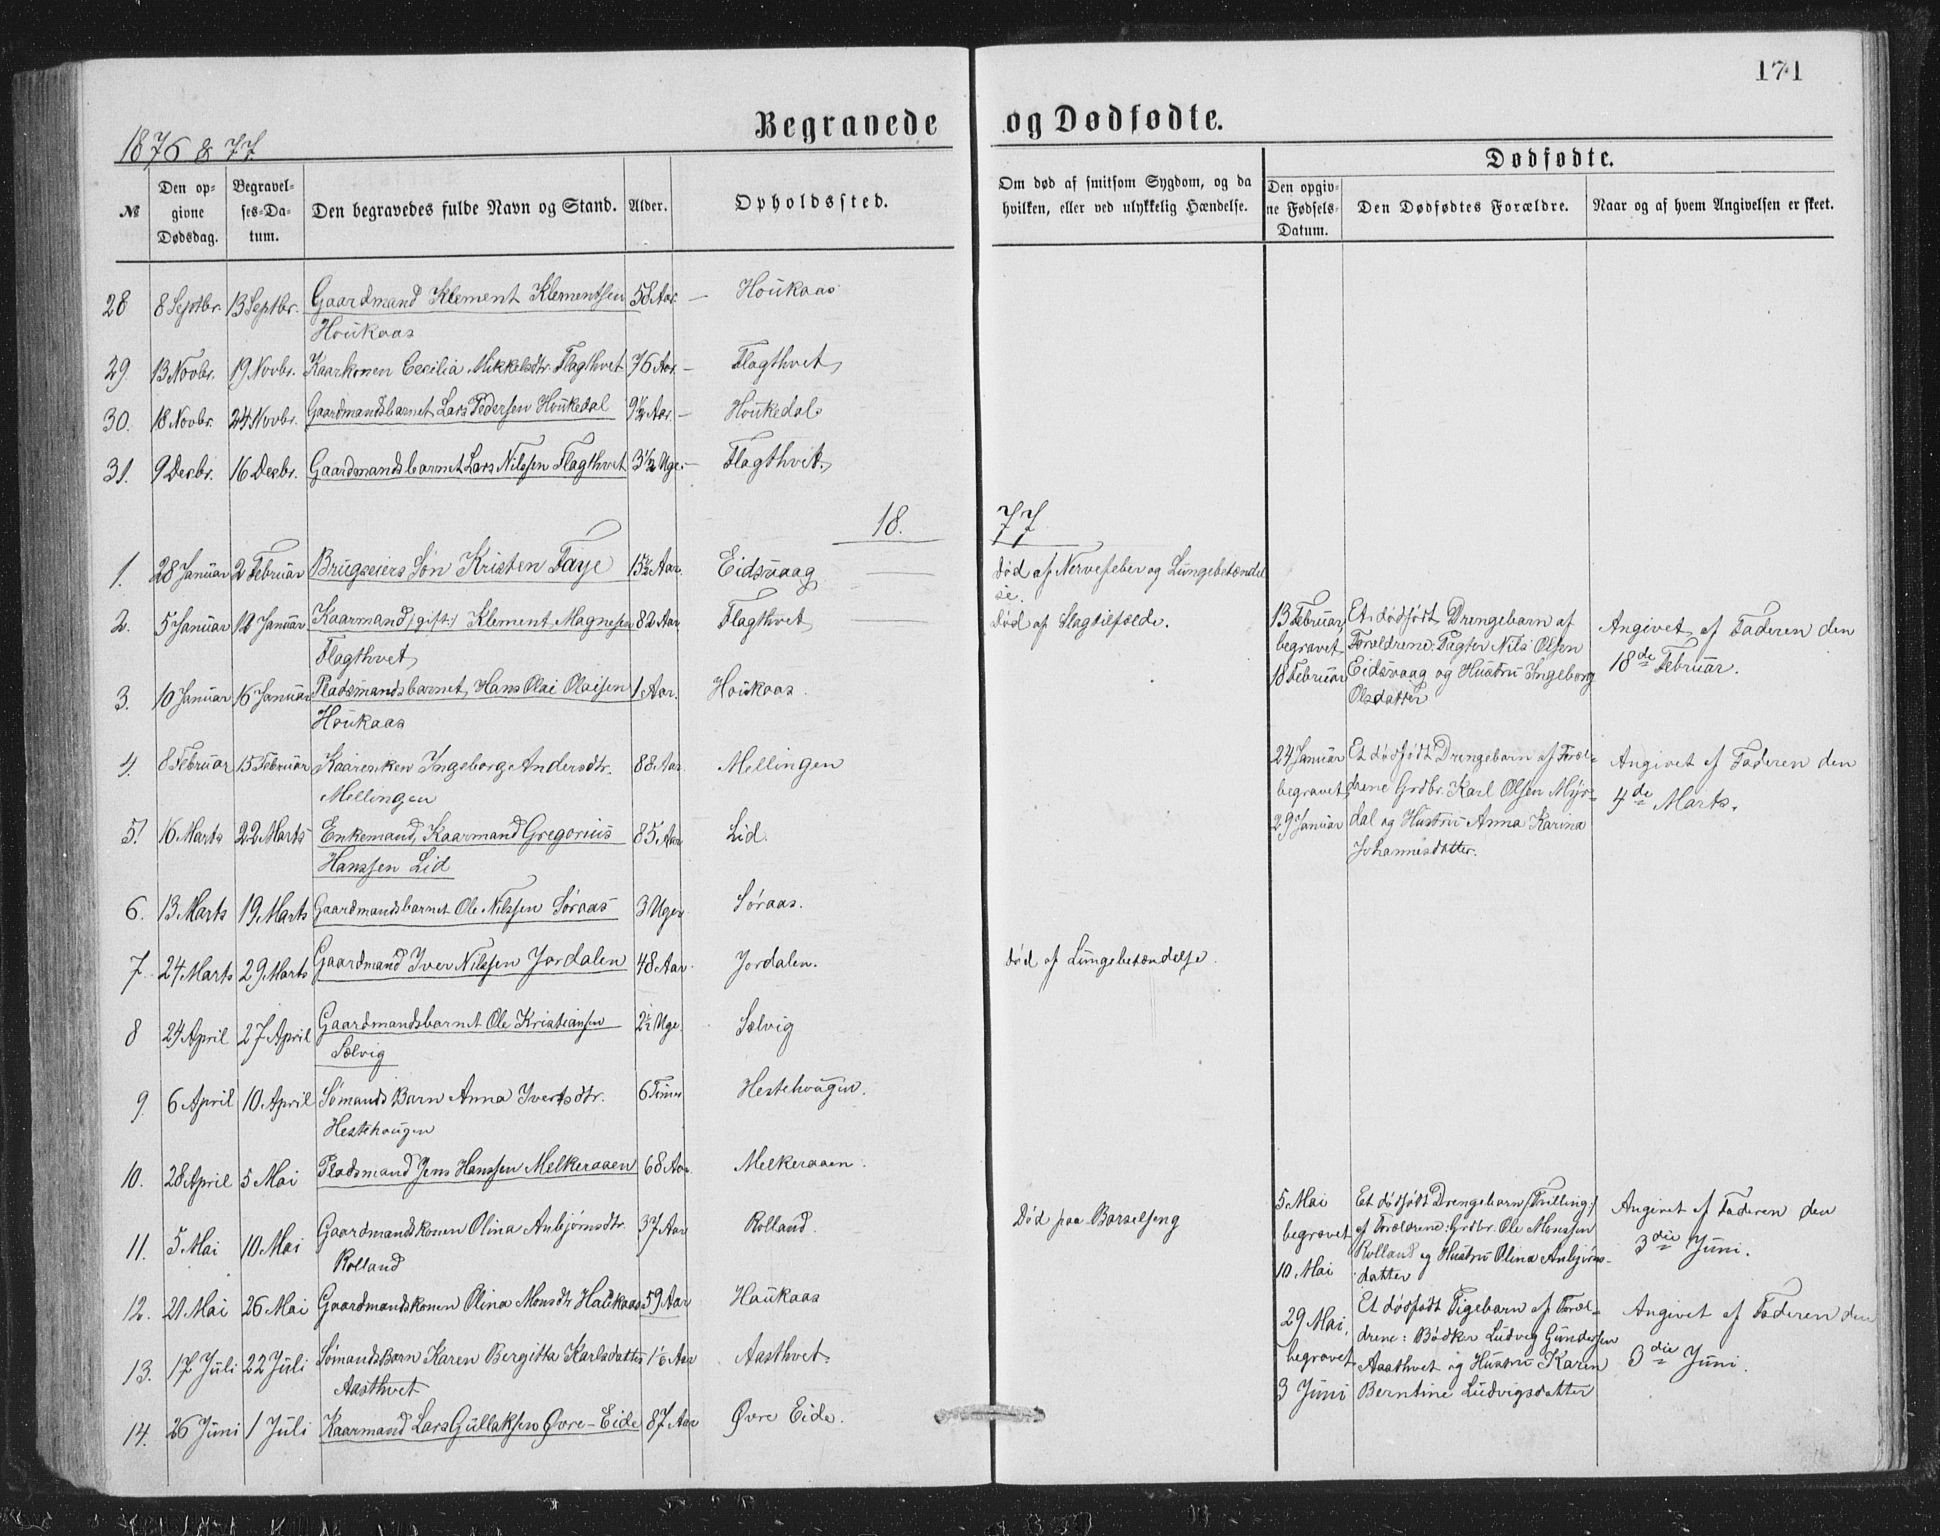 171
Begravede og Dødfødte.
1876 & 77
Dødfødte.
№
Den op-
givne
Dødsdag.
Begravel-
ses-Da-
tum.
Den begravedes fulde Navn og Stand.
Alder.
Opholdssted.
Om død af smitsom Sygdom, og da
hvilken, eller ved ulykkelig Hændelse.
Den opgiv-
ne Fødsels-
Datum.
Den Dødfødtes Forældre.
Naar og af hvem Angivelsen er skeet.
28 8 Septbr. 13 Septbr. Gaardmand Klement Klementsen 58 Aar. — Houkaas
Houkaas
29. 13 Novbr. 19 Novbr. Kaarkonen Cecilia Mikkelsdtr. Flagthvet 76 Aar. — Flagthvet
30. 18 Novbr. 24 Novbr. Gaardmandsbarnet Lars Pedersen Houkedal 9½ Aar. — Houkedal
31. 9 Decbr. 16 Decbr. Gaardmandsbarnet Lars Nilssen Flagthvet 3½ Uge. — Flagthvet.
18. 77
1. 28 Januar 2 Februar Brugseiers Søn Kristen Faye 15½ Aar. Eidsvaag — død af Nervefeber og Lungebetændel
se.
2. 5 Januar 12 Januar Kaarmand /:gift:/ Klement Magnesen 82 Aar Flagthvet — død af Slagtilfælde.
Flagthvet
13 Februar Et dødfødt Drengebarn af
begravet Forældrene: Pagter Nils Olsen
18 Februar Eidsvaag og Hustru Ingeborg
Olsdatter
Angivet af Faderen den
18de Februar.
3. 10 Januar 16 Januar Pladsmandsbarnet Hans Olai Olaisen 1 Aar. Houkaas.
Houkaas
4. 8 Februar 15 Februar Kaarenken Ingeborg Andersdtr. 88 Aar. Mellingen
Mellingen
24 Januar Et dødfødt Drengebarn af Foræl-
begravet drene Grdbr. Karl Olsen Myr-
29 Januar dal og Hustru Anna Karina
Johannesdatter.
Angivet af Faderen den
4de Marts.
5. 16 Marts 22 Marts Enkemand, Kaarmand Gregorius 85 Aar Lid.
Hanssen Lid
6. 13 Marts 19 Marts Gaardmandsbarnet Ole Nilssen Søraas 3 Uger Søraas.
7. 24 Marts 29 Marts Gaardmand Iver Nilssen Jordalen 48 Aar. Jordalen. død af Lungebetændelse.
8 24 April 27 April Gaardmandsbarnet Ole Kristiansen 2½ Uge. Sælvig
Sælvig
9. 6 April 10 April Sømands Barn Anna Ivertsdtr. 6 Timer Hestehougen.
Hestehougen
10. 28 April 5 Mai Pladsmand Jens Hanssen Melkeraaen 68 Aar. Melkeraaen.
11. 5 Mai 10 Mai Gaardmandskonen Olina Anbjørnsdtr. 37 Aar Rolland. Død paa Barselseng
Rolland
5 Mai Et dødfødt Drengebarn /:Trilling:/
begravet af Forældrene: Grdbr. Ole Monssen
10 Mai Rolland og Hustru Olina Anbjørns-
datter
Angivet af Faderen den
3die Juni.
12. 21 Mai 26 Mai Gaardmandskonen Olina Monsdtr Haukaas 59 Aar Haukaas
29 Mai, Et dødfødt Pigebarn af Foræl-
begravet drene: Bødker Ludvig Gundersen
3 Juni Aasthvet og Hustru Karen
Berntine Ludvigsdatter
Angivet af Faderen den
3die Juni.
13. 17 Juli 22 Juli Sømands Barn Karen Bergitta Karlsdatter Aar Aasthvet.
Aasthvet
14. 26 Juni 1 Juli Kaarmand Lars Gullaksen Øvre-Eide 87 Aar Øvre Eide.